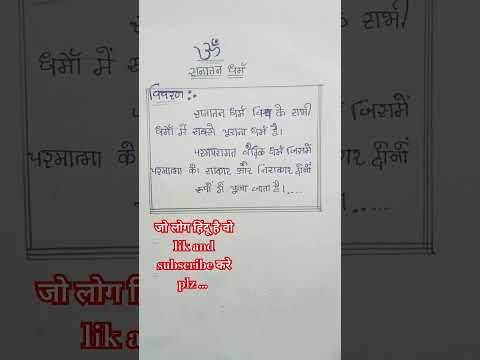 ॐ
सनातन धर्म
विवरण :-
सनातन धर्म विश्व के सभी
धर्मों में सबसे पुराना धर्म है।
परम्परागत वैदिक धर्म जिसमें
परमात्मा के। साकार और निराकार दोनों
रूपों में पूजा जाता है।.....
जो लोग हिंदू है वो
lik and
subscribe करे
plz ...